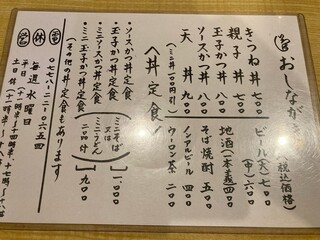 おしながき
税込価格
きつね丼 七〇〇
親子丼 八〇〇
玉子かつ丼 八〇〇
ソースかつ丼 八〇〇
天丼 九〇〇
(ミニ丼一〇〇円引)
ビール(大) 七〇〇
(中) 六〇〇
地酒(一本義)四〇〇
そば焼酎 五〇〇
ノンアルビール 四〇〇
ウーロン茶 二〇〇
〈丼定食〉
・ソースかつ丼定食
・玉子かつ丼定食
ミニそば
又は
ミニうどん
一、〇〇〇
・ミニソースかつ丼定食
・ミニ玉子かつ丼定食
九〇〇
(その他の丼定食もあります)
電 〇七七八-二二-〇六五四
休 毎週水曜日
営 平日
土日祝